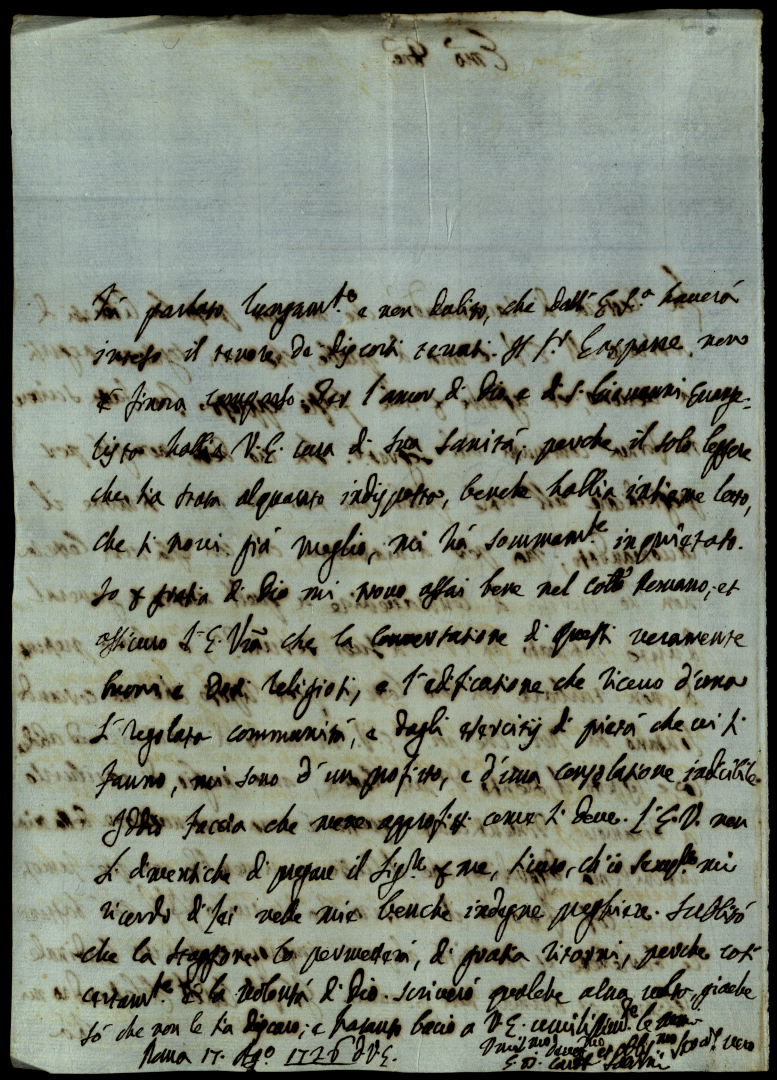 parlato lungam.te e non dubito, che dall' E. S.a haverà
inteso il tenore de discorsi tenuti. Il S.r Gaspare non
è finora comparso. Per l'amor di Dio e di S. Giovanni Evange-
lista habbia V.E. cura di sua sanità, perche il solo leggere
che sia stata alquanto indisposto, benche habbia insieme letto,
che si trovi già meglio, mi hà sommam.te inquietato.
Io p gratia di Dio mi trovo assai bene nel Coll.o Romano, et
assicuro l'E. V.ra che la conversatione di questi veramente
buoni e religiosi, e l'edificatione che ricevo d'una
sì regolata communità, e dagli esercitij di pietà che vi si
fanno, mi sono d'un profitto, e d'una consolatione indicibile.
Iddio faccia che mene approfitti come si deve. L'E.V. non
si dimentichi di pregare il Sig.re p me, sicuro, ch'io mi
ricordo di Lei nelle mie benche indegne preghiere. Subito
che la staggione lo permetterà, di gratia ritorni, perche così
certam.te è la volontà di Dio. Scriverò qualche altra volta, giache
sò che non le sia discaro; e frattanto bacio a V.E. umilissim.te le mani
Roma 17. Ag.o 1726 D.V.E.